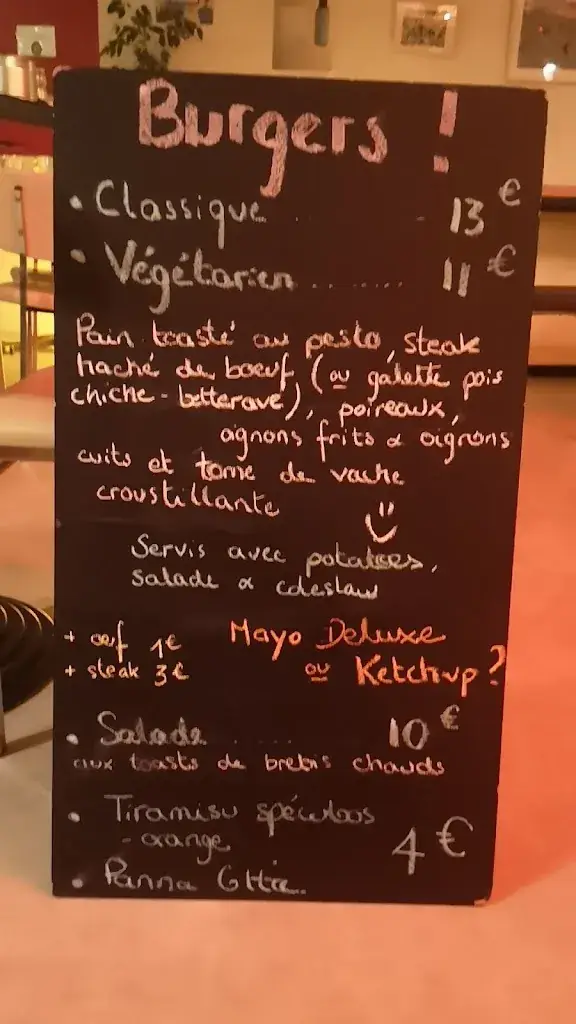 Burgers !
• Classique ... - 13 €
• Végétarien ........ 11 €
Pain toasté au pesto, steak
haché de boeuf (ou galette pois
chiche - betterave), poireaux,
oignons frits & oignons
cuits et tome de vache
croustillante
Servis avec potatoes,
salade & coleslaw
+ oeuf 1€ Mayo Deluxe
+ steak 3€ ou Ketchup?
• Salade .... 10 €
aux toasts de brebis chauds
• Tiramisu spéculoos
- orange 4 €
• Panna Cotta